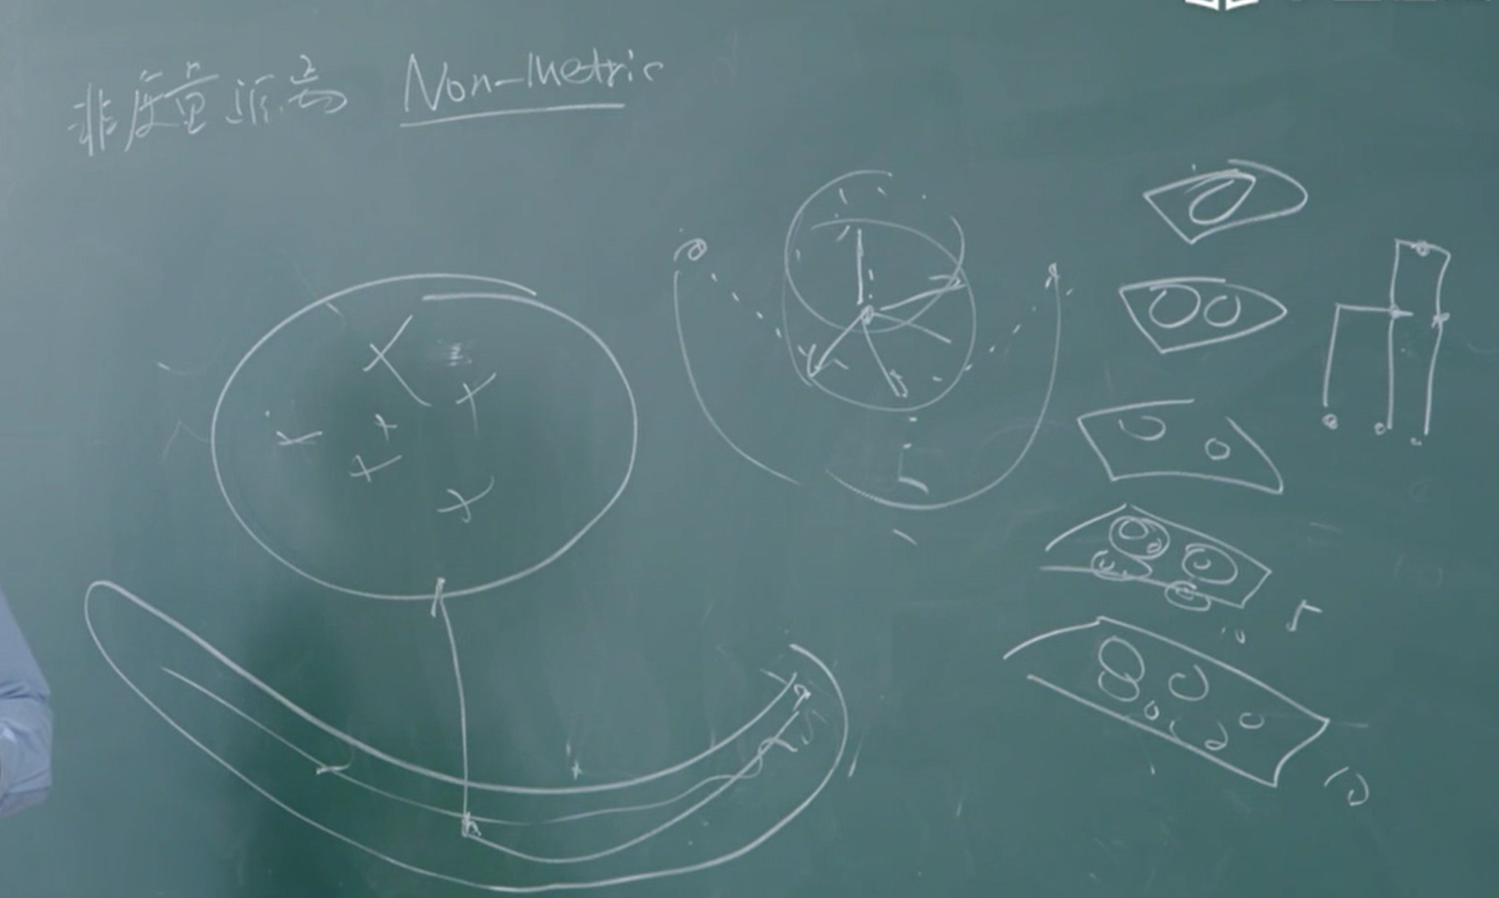 非度量距离 Non-Metric
5
10